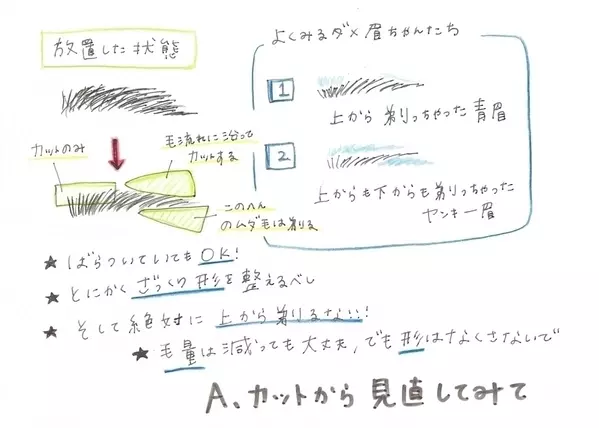 放置した状態
カットのみ
毛流れに沿って
カットする
このへん
のムダ毛は剃る
よくみるダメ眉ちゃんたち
1
上から剃りっちゃった青眉
2
上からも下からも剃りっちゃった
ヤンキー眉
★ ばらついていてもOK!
★ とにかくざっくり形を整えるべし
★ そして絶対に上から剃るな!!
★ 毛量は減っても大丈夫、でも形はなくさないで
A、カットから見直してみて